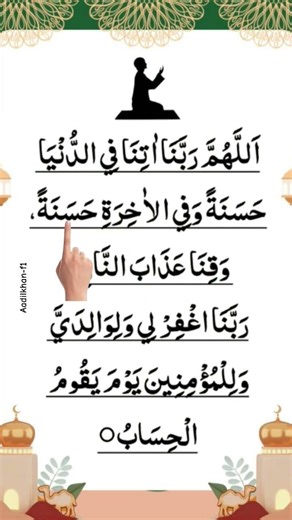 اَللّٰهُمَّ رَبَّنَا اٰتِنَا فِي الدُّنْيَا
حَسَنَةً وَفِي الْاٰخِرَةِ حَسَنَةً،
وَقِنَا عَذَابَ النَّا
رَبَّنَا اغْفِرْ لِي وَلِوَالِدَيَّ
وَلِلْمُؤْمِنِينَ يَوْمَ يَقُومُ
الْحِسَابُ○
Aadilkhan-f1